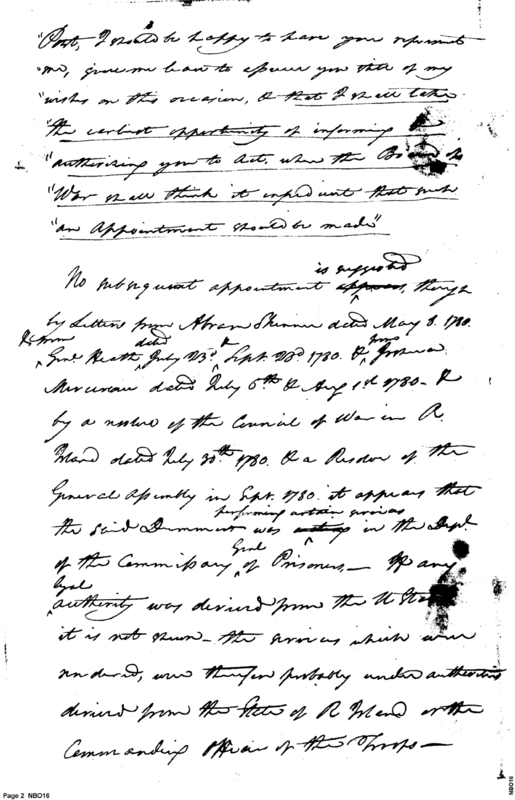 "Post, I should be happy to have you represent
"me, give me leave to assure you this of my
"wishes on this occasion, & that I shall take
"the earliest opportunity of informing &
"authorizing you to Act, when the Board of
"War shall think it expedient that such
"an Appointment should be made"
is suggested
No subsequent appointment appears, though
by Letters from Abram Skinner dated May 8. 1780.
& from dated & from
Genl Heath July 23d, Sept. 1780. & Joshua
Mercereau dated July 6th & Aug 1st 1780 - &
by a resolve of the Council of War in R.
Island dated July 30th 1780. & a Resolve of the
General Assembly in Sept. 1780. it appears that
performing certain services
the said Dummert was acting in the Dept.
Genl
of the Commissary of Prisoners, — If any
legal
authority was derived from the U States
it is not shewn - the services which were
rendered, were therefore probably under authorities
derived from the State of R Island or the
Commanding Officer of the Troops —
Page 2 NBO16
NBO16